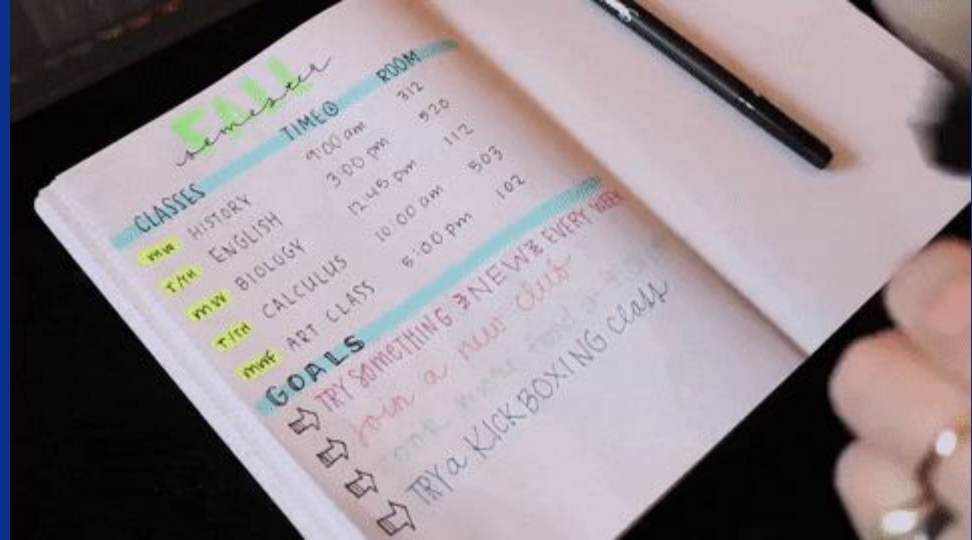 FALL
semester
CLASSES TIME ROOM
MW HISTORY 9:00 am 312
T/TH ENGLISH 3:00 pm 520
MW BIOLOGY 12:45 pm 112
T/TH CALCULUS 10:00 am 503
MWF ART CLASS 5:00 pm 102
GOALS
TRY SOMETHING NEW EVERY WEEK
Join a new club
cook more food
TRY a KICKBOXING class